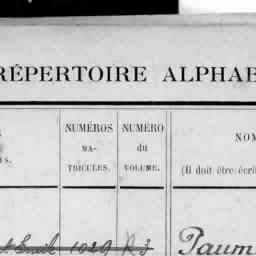 RÉPERTOIRE ALPHAB
NUMÉROS MA- TRICULES.
NUMÉRO du VOLUME.
NOM
(Il doit être écrit
1029 R 3
Paum